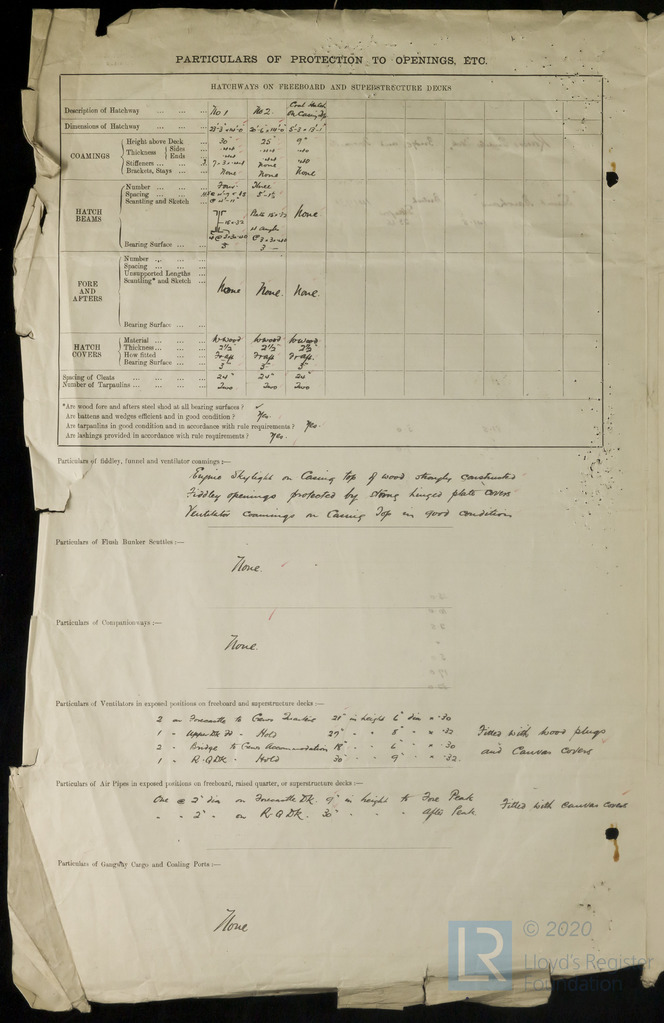 PARTICULARS OF PROTECTION TO OPENINGS, ETC.
HATCHWAYS ON FREEBOARD AND SUPERSTRUCTURE DECKS
Description of Hatchway ... ... ... No 1 No 2. Coal Hatch on Casing Top
Dimensions of Hatchway ... ...
COAMINGS
Height above Deck ... 30" 25" 9"
Thickness Sides ... .44 .44 .40
Ends ... .44 .44 .40
Stiffeners ... ... None
Brackets, Stays ... ... None None None
HATCH BEAMS
Number ... ... ... Four Three
Spacing ... ... ...
Scantling and Sketch ... None
Bearing Surface ... ... 3 3
FORE AND AFTERS
Number ... ... ...
Spacing ... ... ...
Unsupported Lengths ...
Scantling* and Sketch ... None None. None.
Bearing Surface ... ...
HATCH COVERS
Material ... ... ... W wood W wood W wood
Thickness ... ... ... 2½" 2½" 2½"
How fitted ... ... ... Fr aft Fr aft. Fr aft.
Bearing Surface ... ... 3" 3" 3"
Spacing of Cleats ... ... ... ... 24" 24" 24"
Number of Tarpaulins ... ... ... Two Two Two
*Are wood fore and afters steel shod at all bearing surfaces ?
Are battens and wedges efficient and in good condition ? Yes.
Are tarpaulins in good condition and in accordance with rule requirements ? Yes.
Are lashings provided in accordance with rule requirements ? Yes.
Particulars of fiddley, funnel and ventilator coamings :—
Engine Skylight on Casing top of wood strongly constructed
Fiddley openings protected by strong hinged plate covers
Ventilator coamings on Casing Top in good condition
Particulars of Flush Bunker Scuttles :—
None.
Particulars of Companionways :—
None.
Particulars of Ventilators in exposed positions on freeboard and superstructure decks :—
2 on Forecastle to Crews Quarters 21" in height 6" dia × .30
1 " Upper Dk Fd " Hold 27" " " 8" " × .32 Fitted with wood plugs
2 " Bridge to Crews Accommodation 18" " 6" " × .30 and Canvas Covers
1 " R.QDK. " Hold 30" " 9" " × .32.
Particulars of Air Pipes in exposed positions on freeboard, raised quarter, or superstructure decks :—
One @ 2" dia on Forecastle DK. 9" in height to Fore Peak Fitted with canvas covers
" " 2" " on R.QDK. 30" " " " After Peak
Particulars of Gangway Cargo and Coaling Ports :—
None
LR © 2020
Lloyd's Register
Foundation